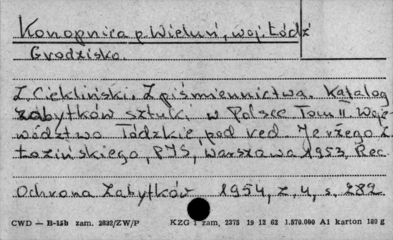 Konopnica p. Wieluń, woj. Łódź
Grodzisko.
Z. Ciekliński. Z piśmiennictwa. Katalog
zabytków sztuki w Polsce Tom II Woje-
wództwo Łódzkie, pod red. Jerzego Z
Łozińskiego, PIS, Warszawa 1953, Rec.
Ochrona Zabytków 1954, z. 4, s. 282
CWD — B-15b zam. 2832/ZW/P KZG 1 zam, 2375 19 12 62 1.570.000 A1 karton 180 g